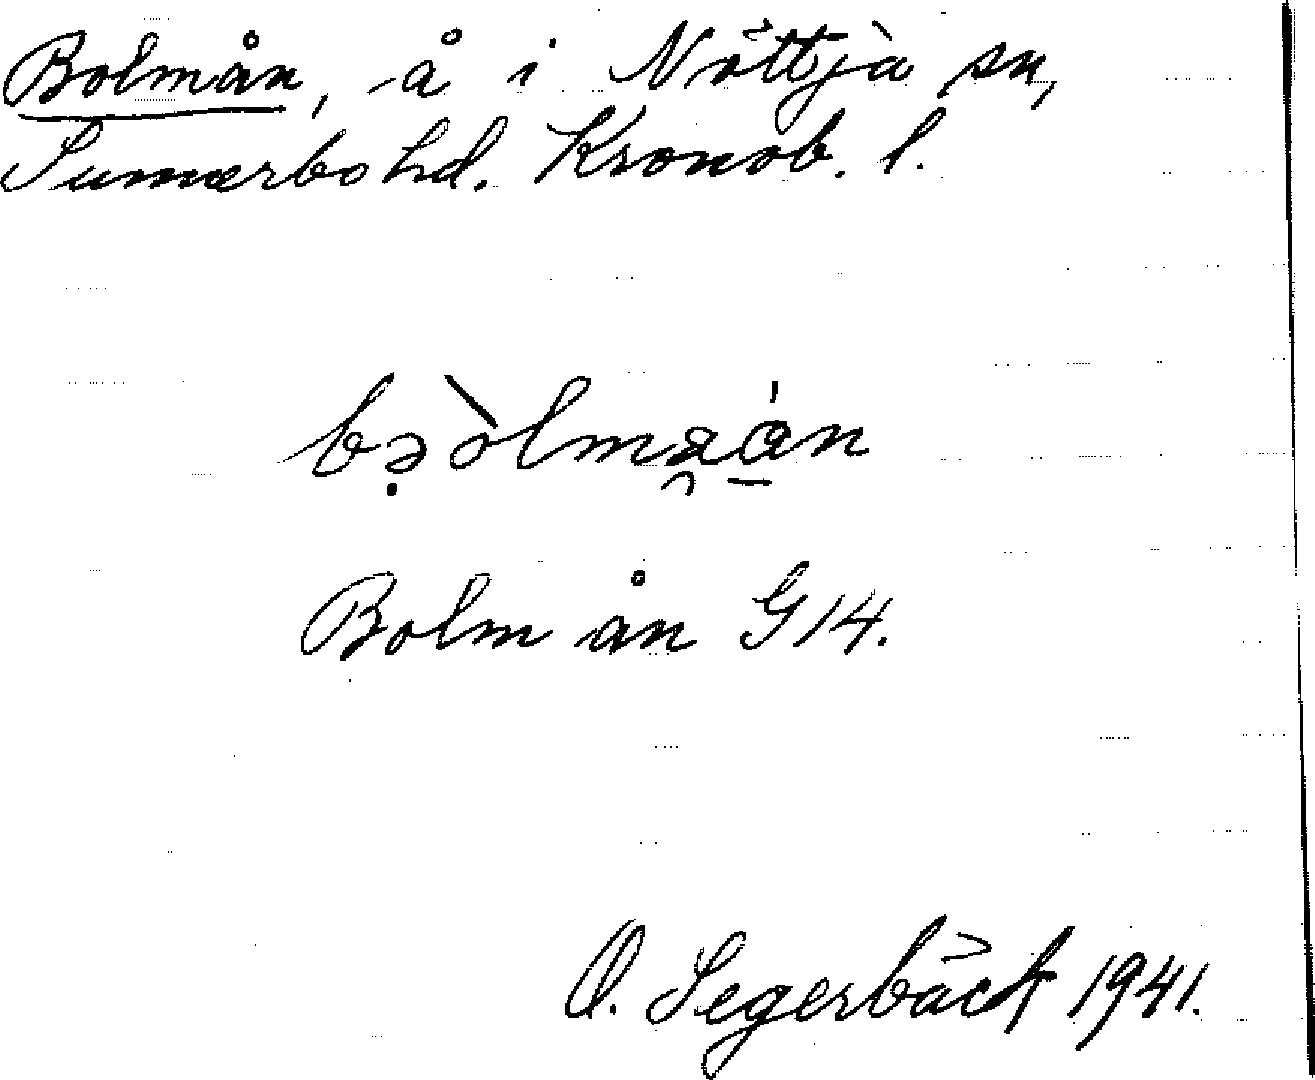 Bolmån, å i Nöttja sn,
Sunnerbo hd. Kronob. l.
bəòlmaán
Bolm ån G14.
O. Segerbäck 1941.